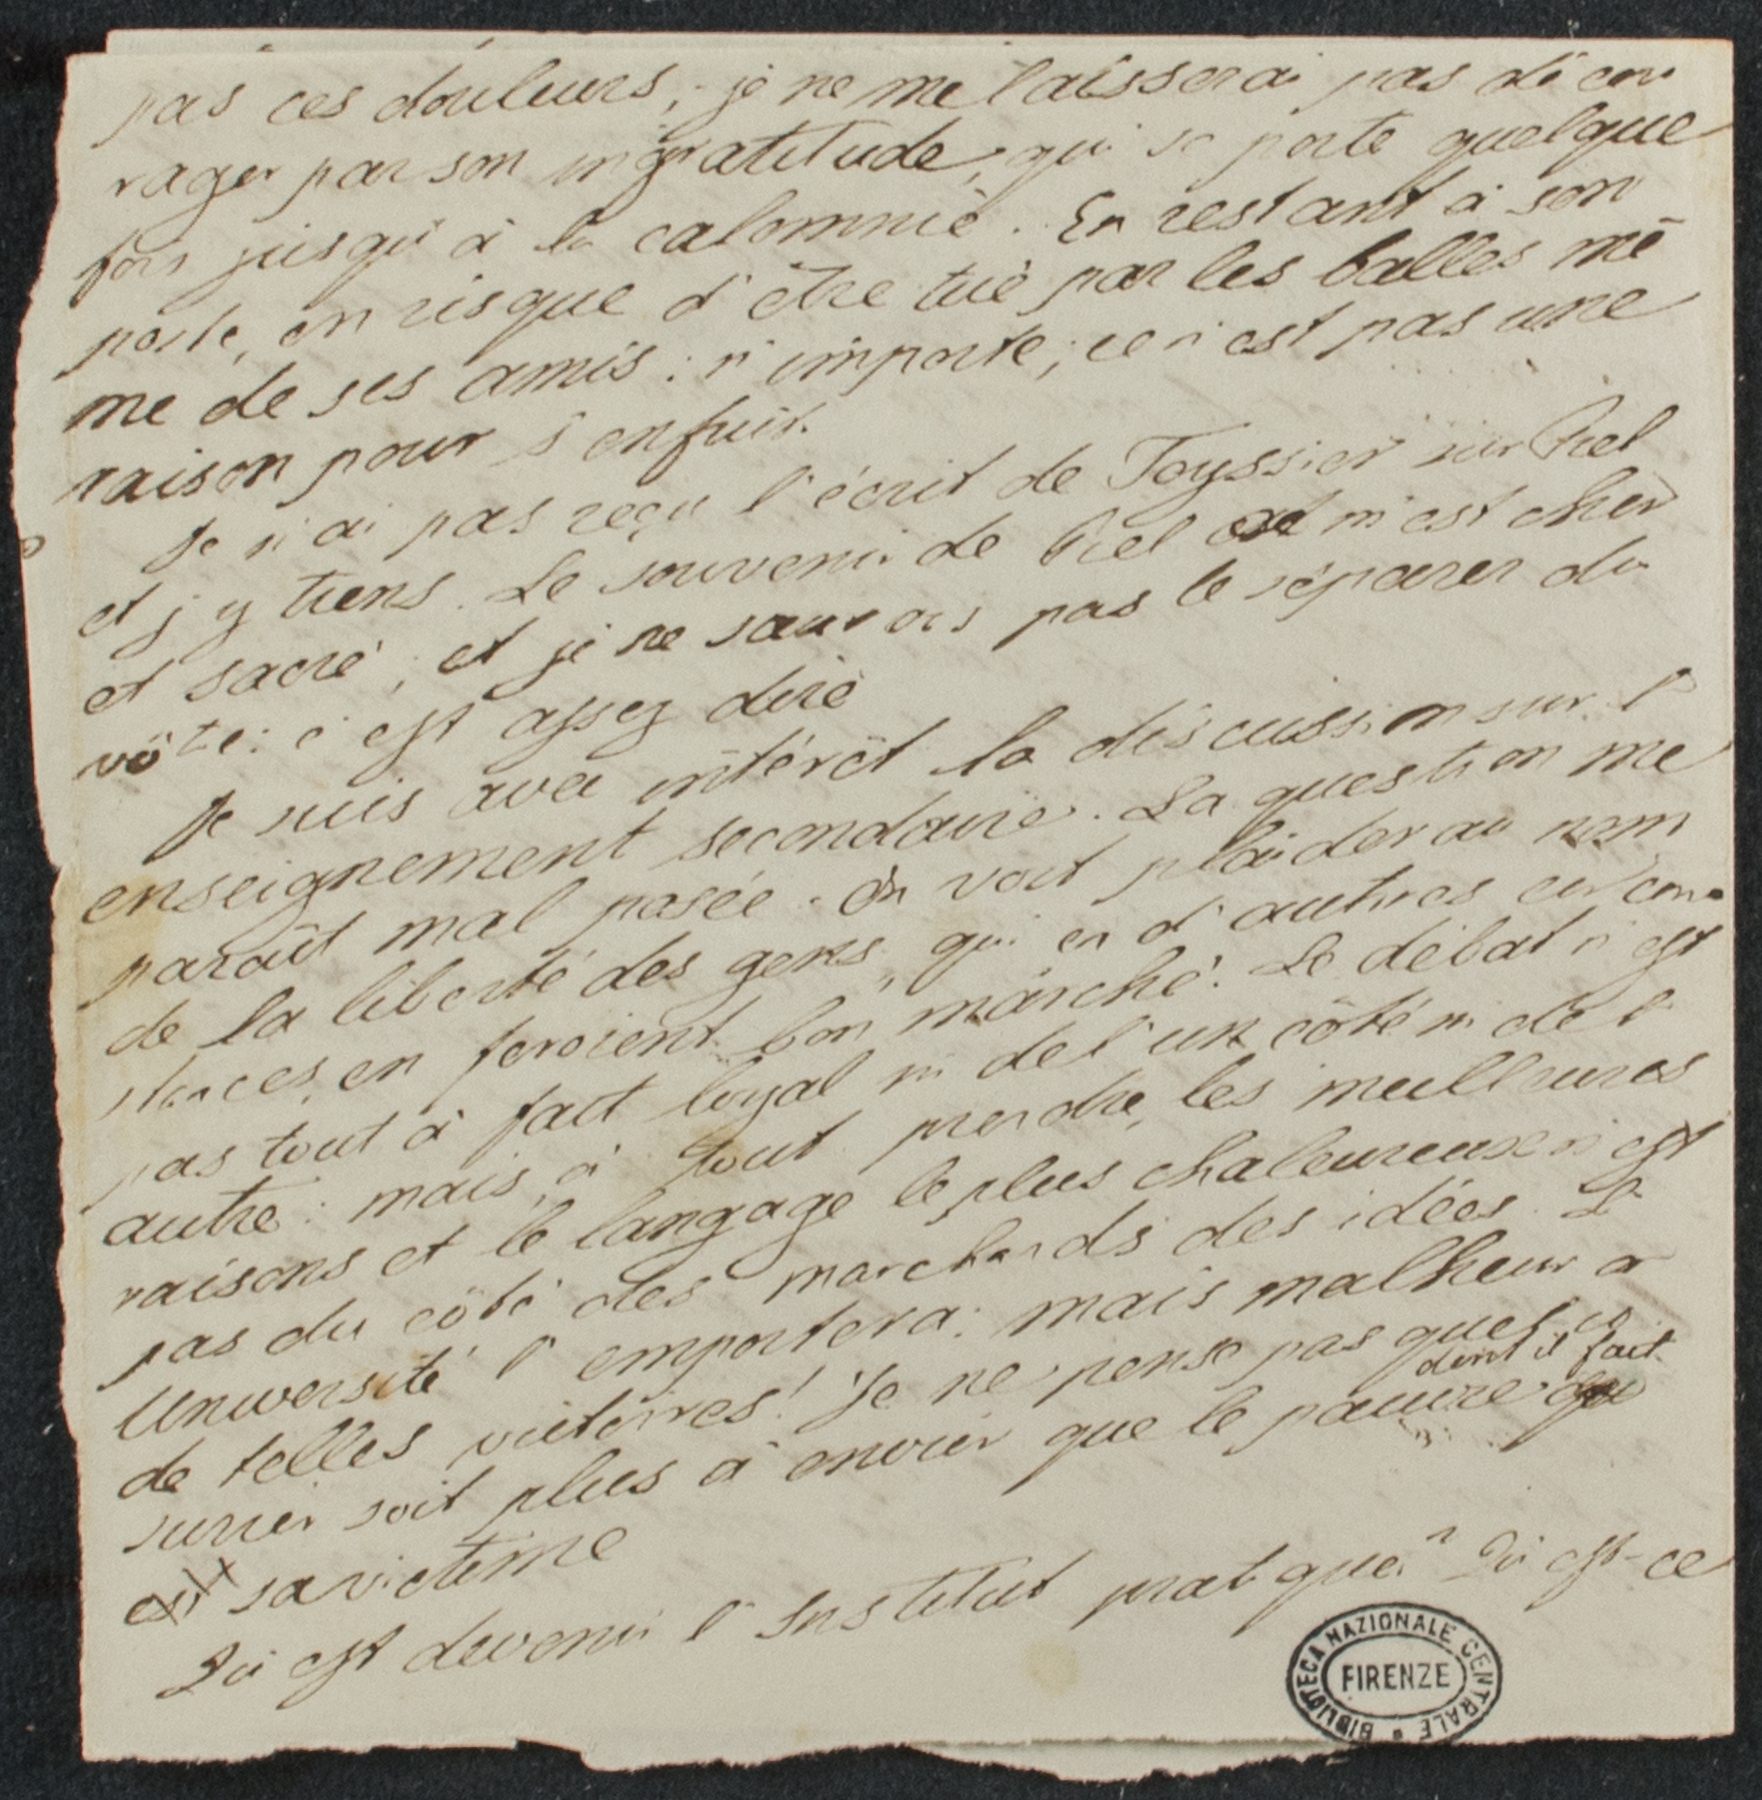 pas ces douleurs; je ne me laisserai pas décou
rager par son ingratitude, qui se porte quelque
fois jusqu'à la calomnie. En restant à son
poste, on risque d'être tué par les balles mê
me de ses amis: n'importe; ce n'est pas une
raison pour s'enfuir.
Je n'ai pas reçu l'écrit de Teyssier sur
et j'y tiens. Le souvenir de m'est cher
et sacré, et je ne saurois pas le séparer du
vôtre: c'est assez dire
Je suis avec intérêt la discussion sur l'
enseignement secondaire. La question me
paraît mal posée. On voit plaider au nom
de la liberté des gens, qui en d'autres circon
stances, en feroient bon marché. Le débat n'est
pas tout à fait loyal ni de l'un côté ni de l'
autre: mais, à tout prendre, les meilleures
raisons et le langage le plus chaleureux n'est
pas du côté des marchands des idées. L'
Université l'emportera: mais malheur à
de telles victoires! Je ne pense pas que l'u
dont il fait
surier soit plus à envier que le pauvre
sa victime
Qu'est devenu l'Institut pratique? Qu'est-ce
BIBLIOTECA NAZIONALE CENTRALE
FIRENZE